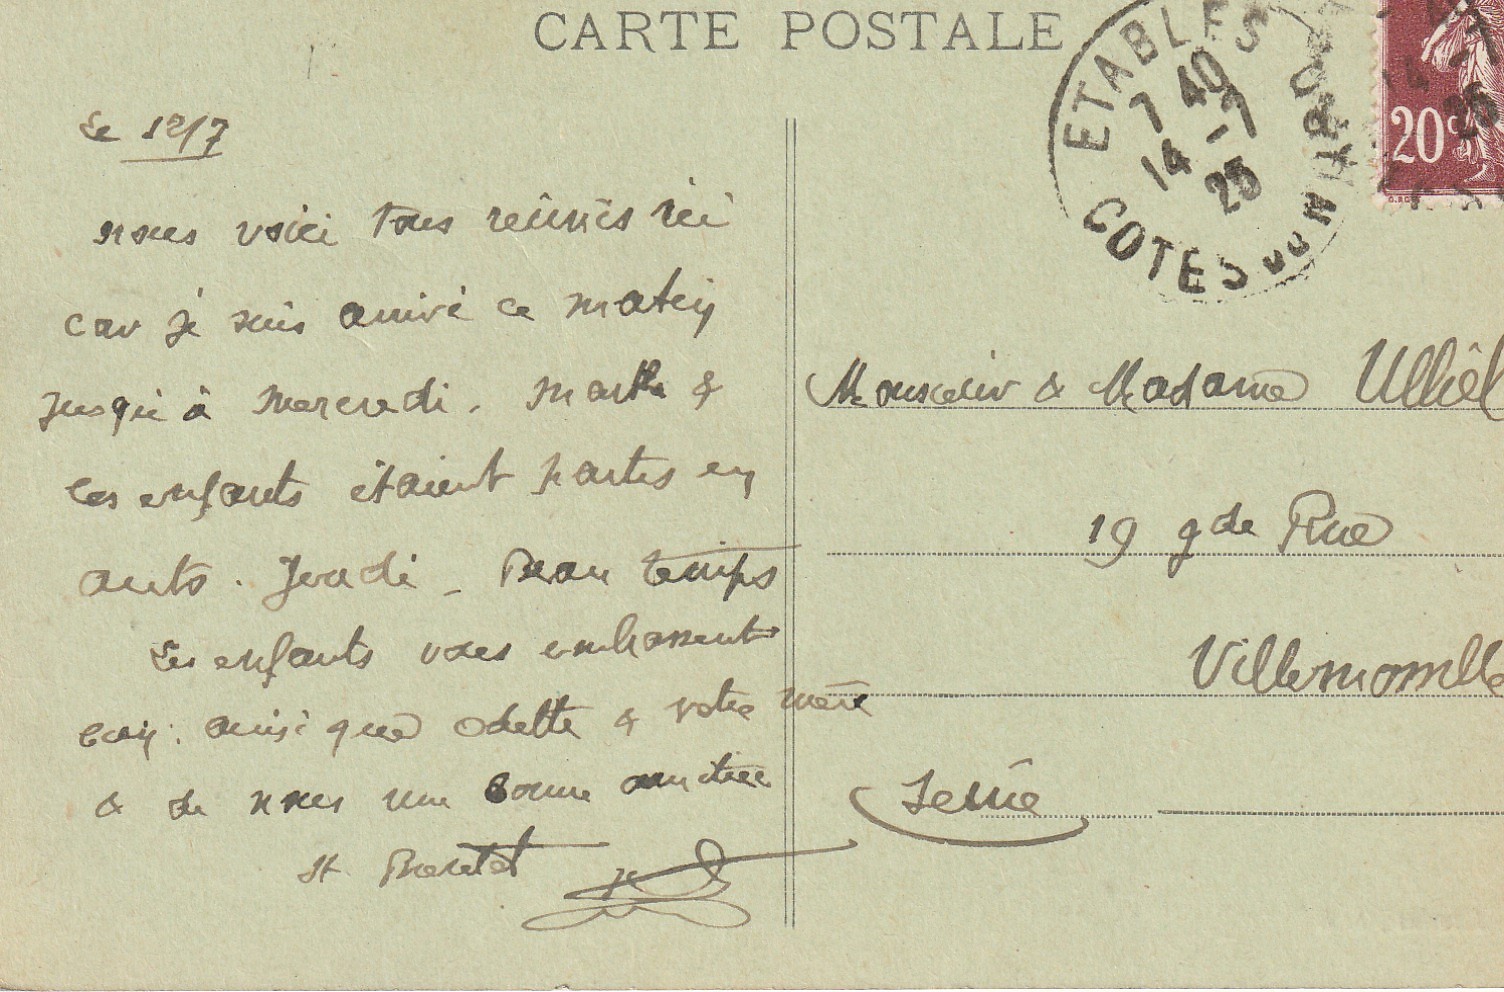 CARTE POSTALE
ETABLES
7 40
14 - 7
25
COTES DU NORD
20c
Le 12/7
nous voici tous réunis ici
car je suis arrivé ce matin
jusqu'à mercredi. Marthe &
les enfants étaient partis en
auto. Jeudi - Beau temps
Les enfants vous embrassent
bien. ainsi que Odette & votre mère
& de nous une bonne amitiée
Monsieur & Madame Ulliel
19 gde Rue
Villemomble
Seine